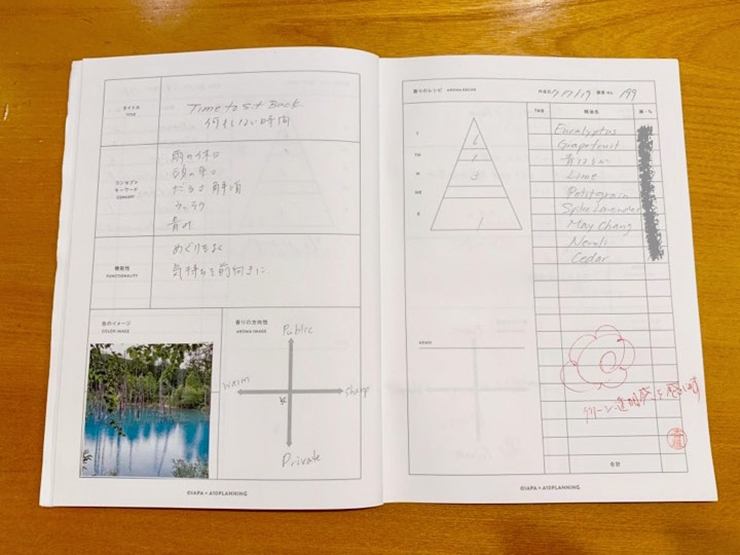 タイトル
TITLE
Time to Sit Back
何もしない時間
コンセプト
キーワード
CONCEPT
雨の休日
頭の休日
だらさ 解消
青み
機能性
FUNCTIONALITY
めぐりをよく
気持ちを前向きに
色のイメージ
COLOR IMAGE
香りの方向性
AROMA IMAGE
Public
warm
Sharp
Private
©IAPA × A10PLANNING
香りのレシピ
AROMA RECIPE
199
T
TM
M
MB
B
6
1
3
1
TMB
精油名
滴・%
Eucalyptus
Grapefruit
Lime
Petitgrain
Spike Lavender
May Chang
Neroli
Cedar
MEMO
グリーン 透明感を感じます
合計
©IAPA × A10PLANNING